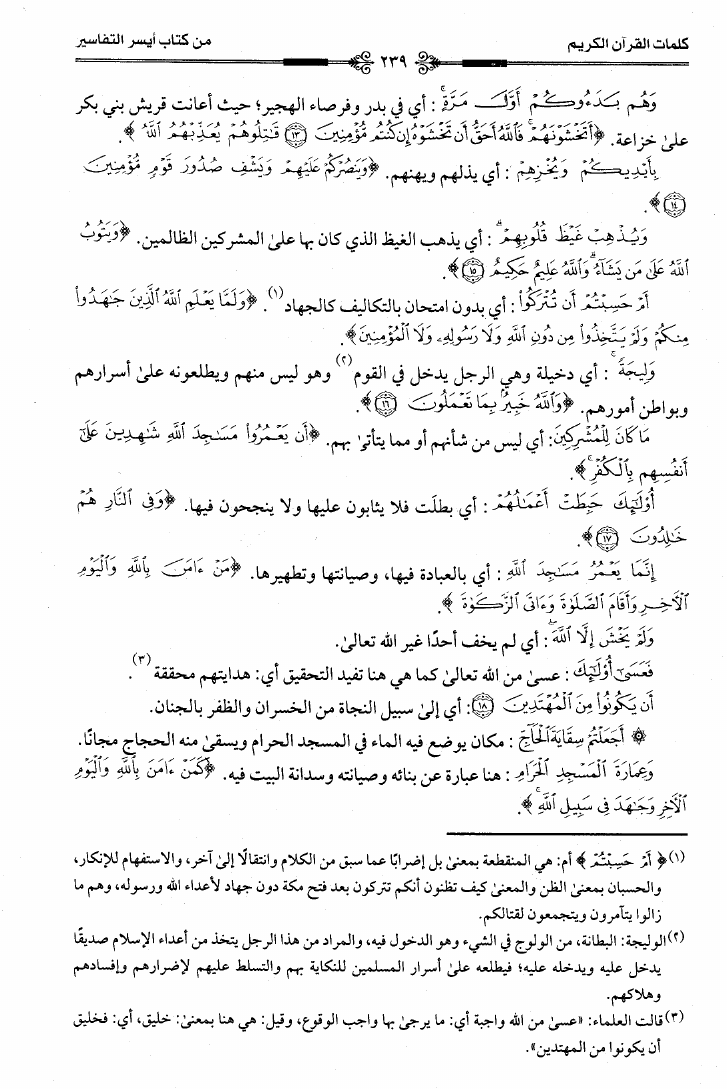 كلمات القرآن الكريم
٢٣٩
من كتاب أيسر التفاسير
وَهُم بَدَءُوكُمْ أَوَّلَ مَرَّةٍ ۚ : أي في بدر وفرصاء الهجير؛ حيث أعانت قريش بني بكر
علىٰ خزاعة. ﴿أَتَخْشَوْنَهُمْ ۚ فَاللَّهُ أَحَقُّ أَن تَخْشَوْهُ إِن كُنتُم مُّؤْمِنِينَ ۝١٣ قَاتِلُوهُمْ يُعَذِّبْهُمُ اللَّهُ ﴾.
بِأَيْدِيكُمْ وَيُخْزِهِمْ : أي يذلهم ويهنهم. ﴿وَيَنصُرْكُمْ عَلَيْهِمْ وَيَشْفِ صُدُورَ قَوْمٍ مُّؤْمِنِينَ
۝١٤﴾.
وَيُذْهِبْ غَيْظَ قُلُوبِهِمْ ۗ : أي يذهب الغيظ الذي كان بها علىٰ المشركين الظالمين. ﴿وَيَتُوبُ
اللَّهُ عَلَىٰ مَن يَشَاءُ ۗ وَاللَّهُ عَلِيمٌ حَكِيمٌ ۝١٥﴾.
أَمْ حَسِبْتُمْ أَن تُتْرَكُوا : أي بدون امتحان بالتكاليف كالجهاد(١). ﴿وَلَمَّا يَعْلَمِ اللَّهُ الَّذِينَ جَاهَدُوا
مِنكُمْ وَلَمْ يَتَّخِذُوا مِن دُونِ اللَّهِ وَلَا رَسُولِهِ وَلَا الْمُؤْمِنِينَ﴾.
وَلِيجَةً ۚ : أي دخيلة وهي الرجل يدخل في القوم(٢) وهو ليس منهم ويطلعونه علىٰ أسرارهم
وبواطن أمورهم. ﴿وَاللَّهُ خَبِيرٌ بِمَا تَعْمَلُونَ ۝١٦﴾.
مَا كَانَ لِلْمُشْرِكِينَ: أي ليس من شأنهم أو مما يتأتىٰ بهم. ﴿أَن يَعْمُرُوا مَسَاجِدَ اللَّهِ شَاهِدِينَ عَلَىٰ
أَنفُسِهِم بِالْكُفْرِ ۚ﴾.
أُولَٰئِكَ حَبِطَتْ أَعْمَالُهُمْ : أي بطلَت فلا يثابون عليها ولا ينجحون فيها. ﴿وَفِي النَّارِ هُمْ
خَالِدُونَ ۝١٧﴾.
إِنَّمَا يَعْمُرُ مَسَاجِدَ اللَّهِ : أي بالعبادة فيها، وصيانتها وتطهيرها. ﴿مَنْ ءَامَنَ بِاللَّهِ وَالْيَوْمِ
الْآخِرِ وَأَقَامَ الصَّلَوٰةَ وَءَاتَى الزَّكَوٰةَ ﴾.
وَلَمْ يَخْشَ إِلَّا اللَّهَ ۖ : أي لم يخف أحدًا غير الله تعالىٰ.
فَعَسَىٰ أُولَٰئِكَ : عسىٰ من الله تعالىٰ كما هي هنا تفيد التحقيق أي: هدايتهم محققة(٣).
أَن يَكُونُوا مِنَ الْمُهْتَدِينَ ۝١٨: أي إلىٰ سبيل النجاة من الخسران والظفر بالجنان.
۞ أَجَعَلْتُمْ سِقَايَةَ الْحَاجِّ : مكان يوضع فيه الماء في المسجد الحرام ويسقىٰ منه الحجاج مجانًا.
وَعِمَارَةَ الْمَسْجِدِ الْحَرَامِ : هنا عبارة عن بنائه وصيانته وسدانة البيت فيه. ﴿كَمَنْ ءَامَنَ بِاللَّهِ وَالْيَوْمِ
الْآخِرِ وَجَاهَدَ فِي سَبِيلِ اللَّهِ ۚ﴾.
(١)﴿ أَمْ حَسِبْتُمْ ﴾ أم: هي المنقطعة بمعنىٰ بل إضرابًا عما سبق من الكلام وانتقالًا إلىٰ آخر، والاستفهام للإنكار،
والحسبان بمعنىٰ الظن والمعنىٰ كيف تظنون أنكم تتركون بعد فتح مكة دون جهاد لأعداء الله ورسوله، وهم ما
زالوا يتآمرون ويتجمعون لقتالكم.
(٢)الوليجة: البطانة، من الولوج في الشيء وهو الدخول فيه، والمراد من هذا الرجل يتخذ من أعداء الإسلام صديقًا
يدخل عليه ويدخله عليه؛ فيطلعه علىٰ أسرار المسلمين للنكاية بهم والتسلط عليهم لإضرارهم وإفسادهم
وهلاكهم.
(٣)قالت العلماء: «عسىٰ من الله واجبة أي: ما يرجىٰ بها واجب الوقوع، وقيل: هي هنا بمعنىٰ: خليق، أي: فخليق
أن يكونوا من المهتدين».